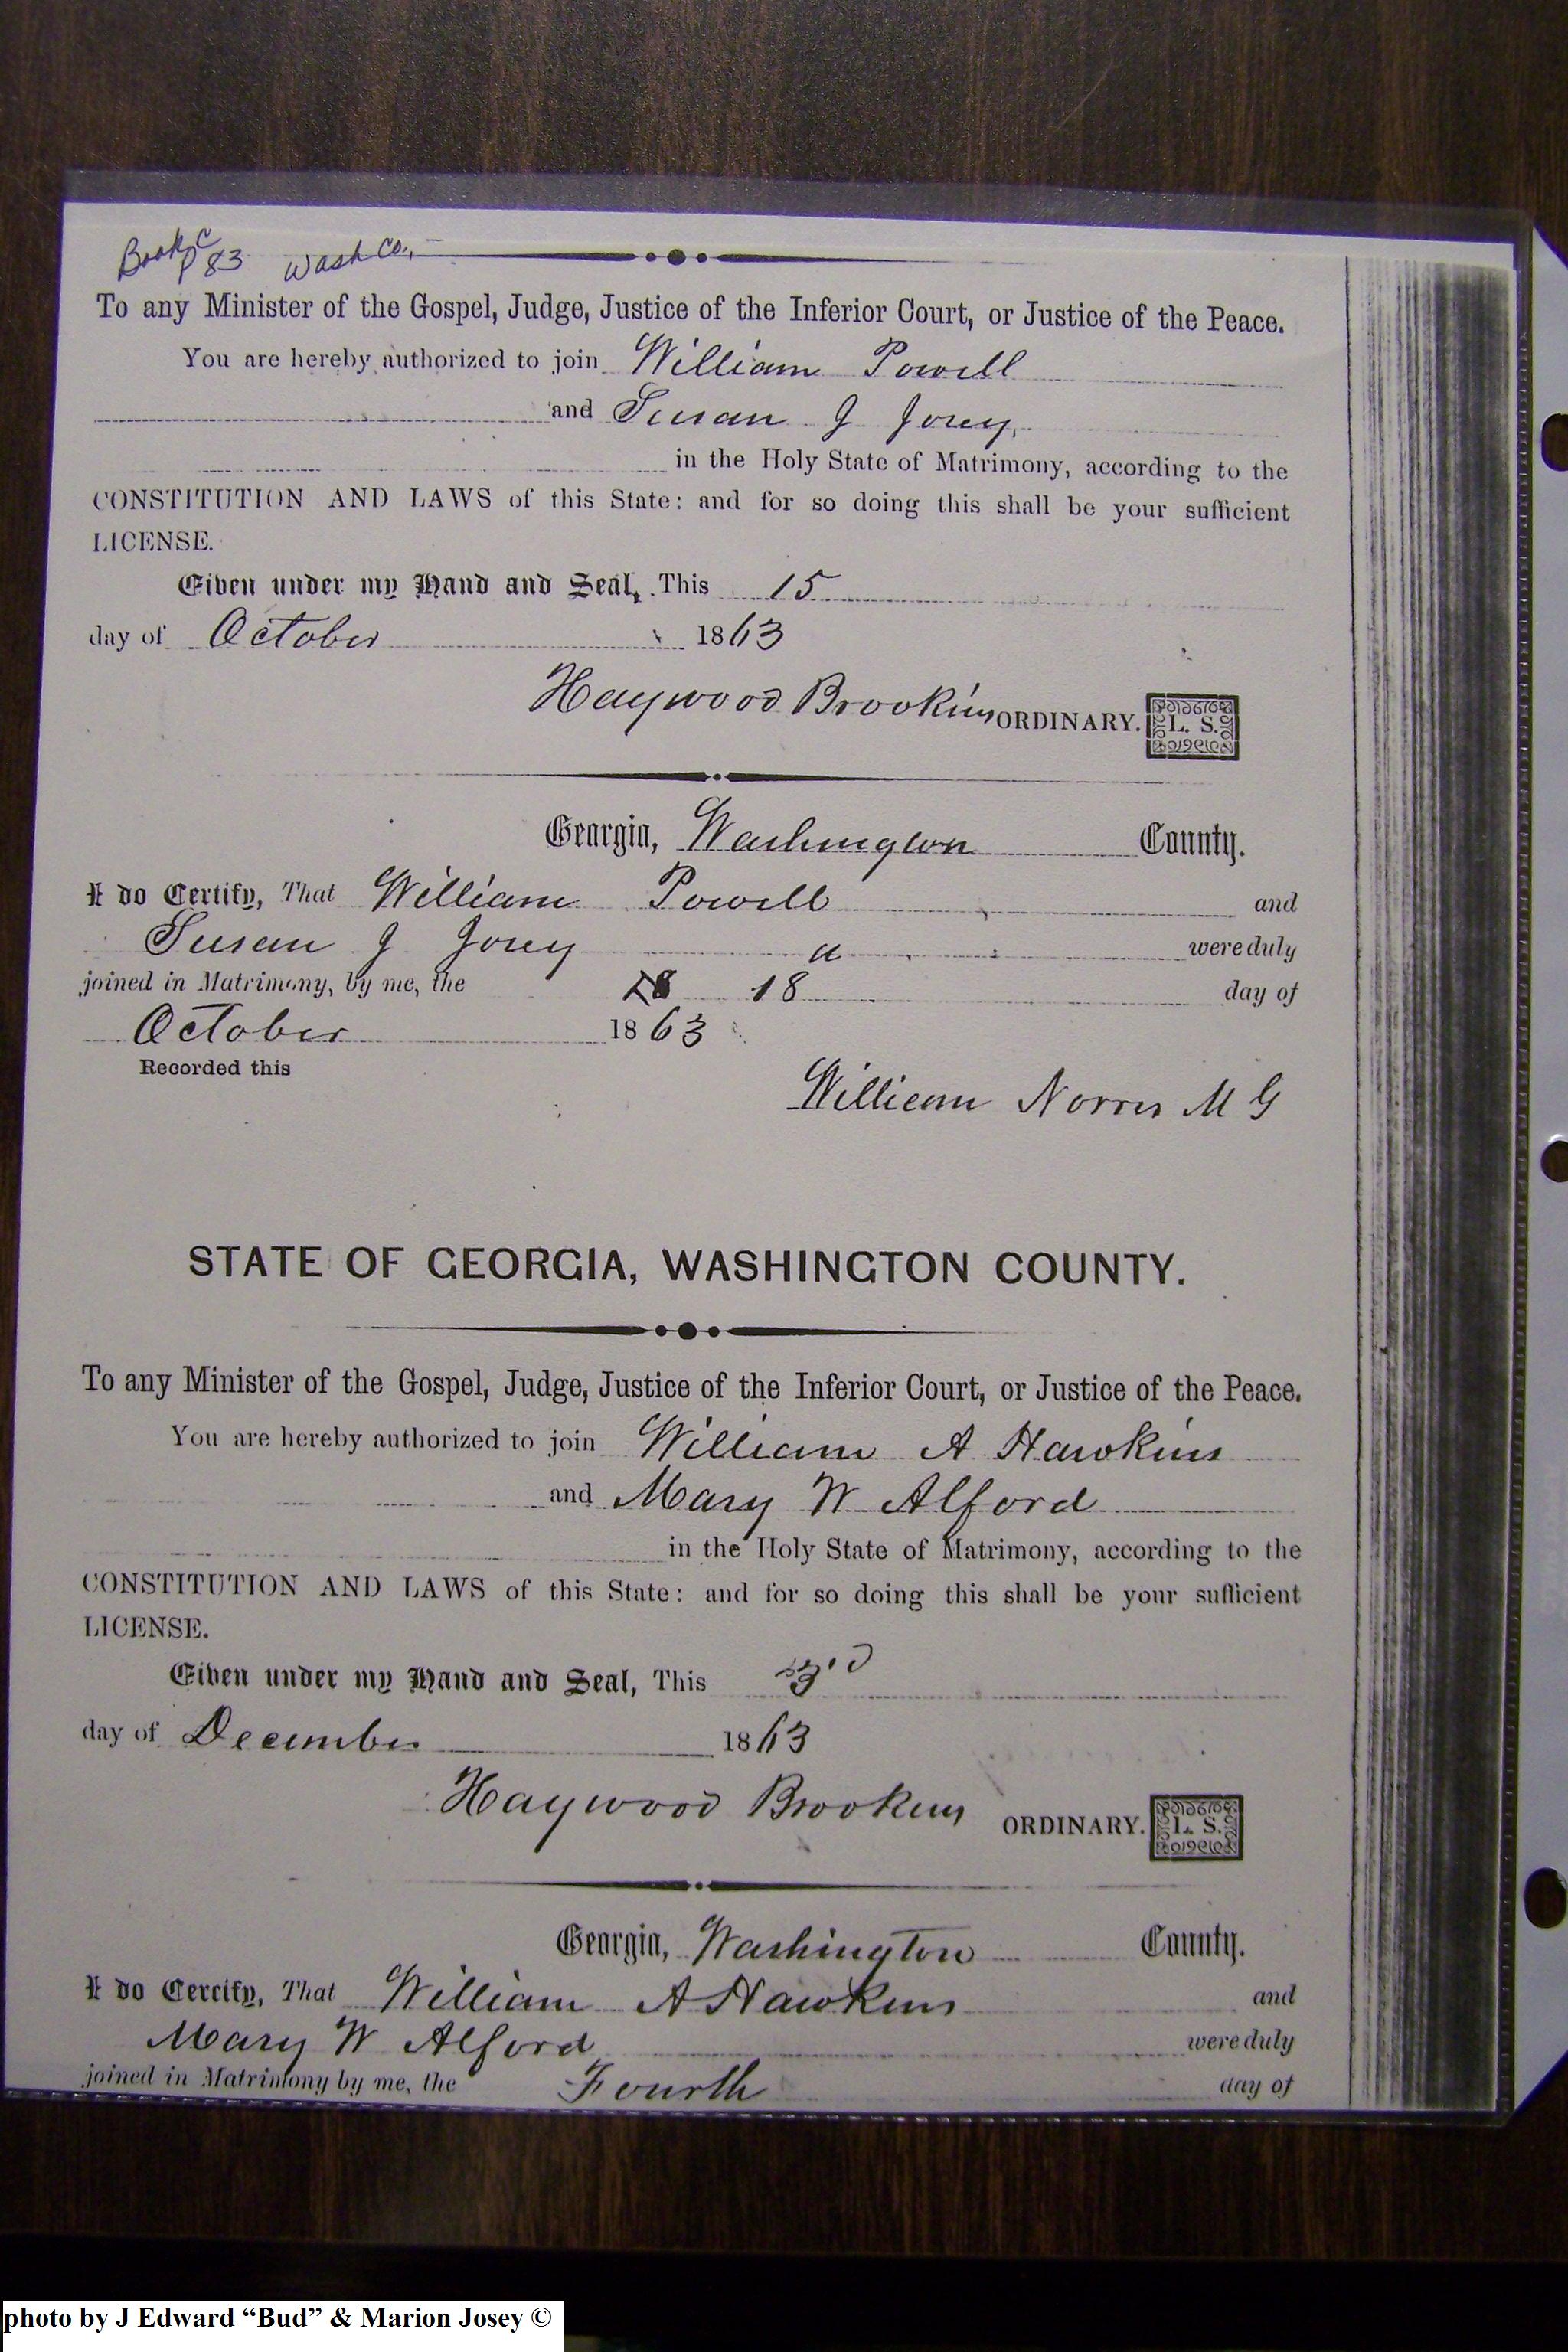 Book C
P 83 Wash Co.,
To any Minister of the Gospel, Judge, Justice of the Inferior Court, or Justice of the Peace.
You are hereby authorized to join William Powell
and Susan J Josey,
in the Holy State of Matrimony, according to the
CONSTITUTION AND LAWS of this State: and for so doing this shall be your sufficient
LICENSE.
Given under my Hand and Seal, This 15
day of October 1863
Haywood Brookins ORDINARY. L. S.
Georgia, Washington County.
I do Certify, That William Powell and
Susan J Josey were duly
joined in Matrimony, by me, the 18 day of
October 1863
Recorded this
William Norris M G
STATE OF GEORGIA, WASHINGTON COUNTY.
To any Minister of the Gospel, Judge, Justice of the Inferior Court, or Justice of the Peace.
You are hereby authorized to join William A Hawkins
and Mary W Alford
in the Holy State of Matrimony, according to the
CONSTITUTION AND LAWS of this State: and for so doing this shall be your sufficient
LICENSE.
Given under my Hand and Seal, This 3rd
day of December 1863
Haywood Brookins ORDINARY. L. S.
Georgia, Washington County.
I do Cercify, That William A Hawkins and
Mary W Alford were duly
joined in Matrimony by me, the Fourth day of
photo by J Edward “Bud” & Marion Josey ©